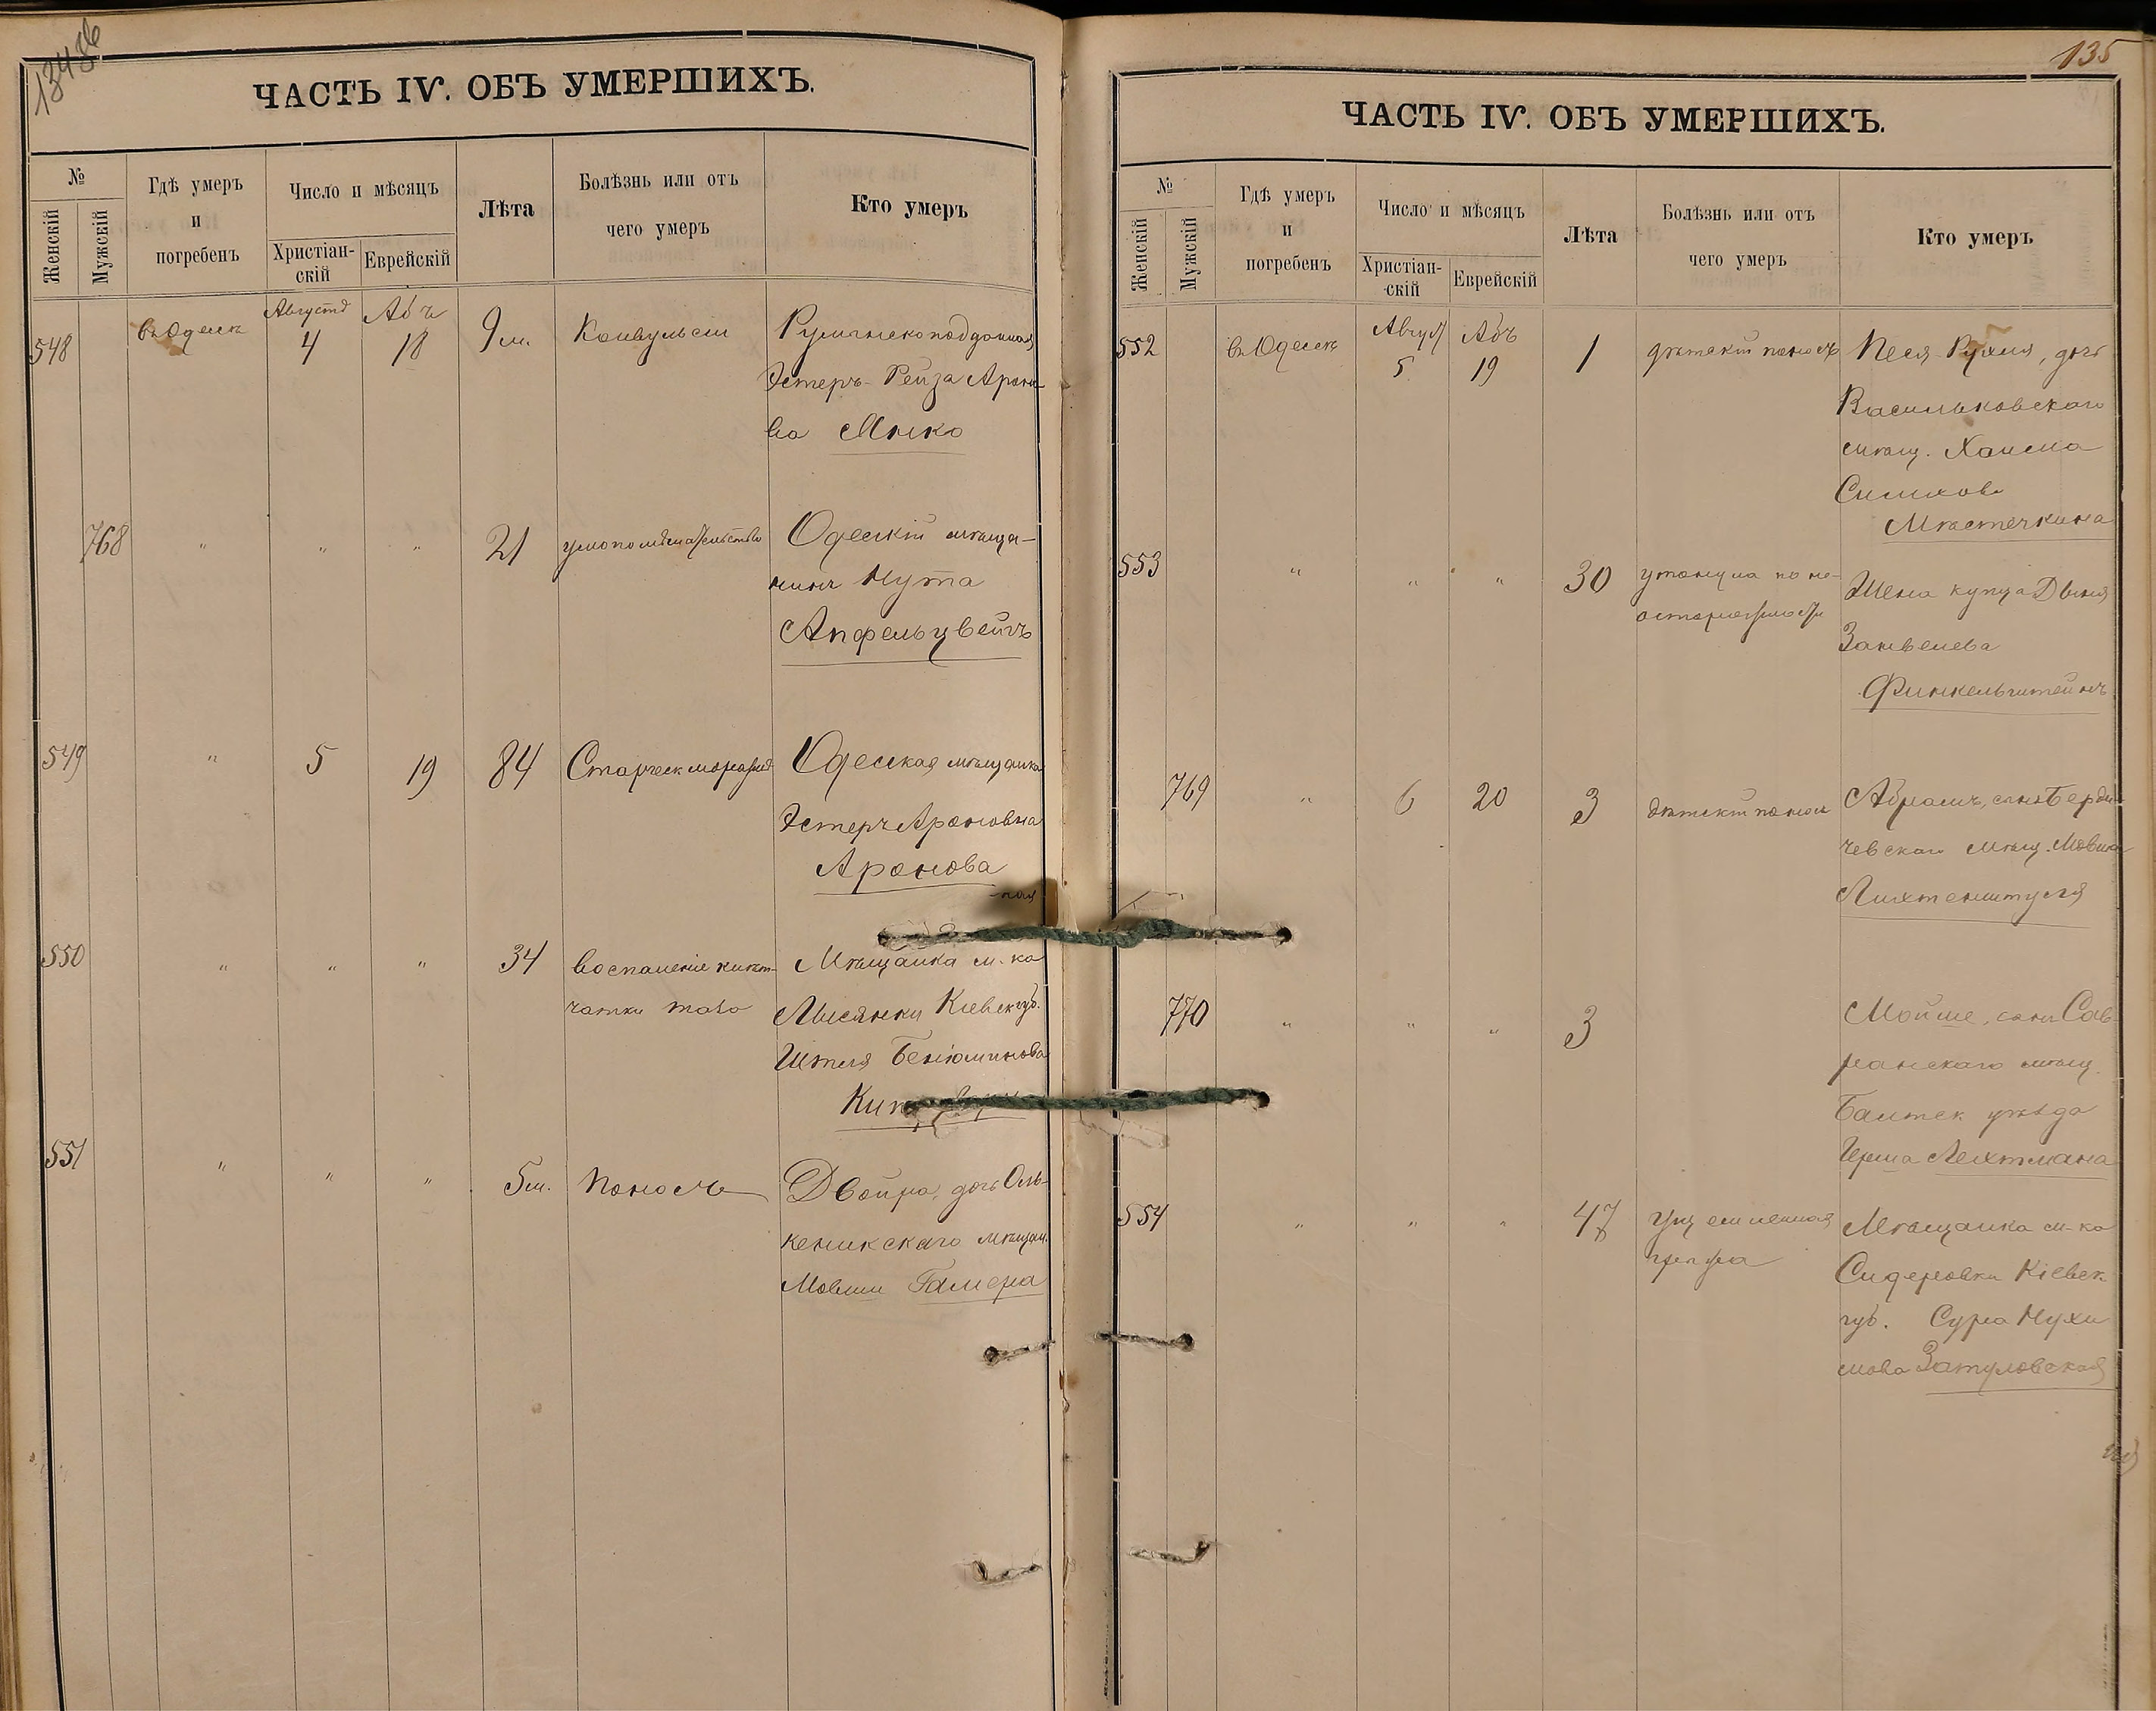 134
ЧАСТЬ IV. ОБЪ УМЕРШИХЪ.
№
Женскій
Мужскій
Гдѣ умеръ
и
погребенъ
Число и мѣсяцъ
Христіан-
скій
Еврейскій
Лѣта
Болѣзнь или отъ
чего умеръ
Кто умеръ
548 въ Одессѣ Августъ 4 Абъ 18 9 м. Конвульсіи Румынскоподданная
Эстеръ-Рейза Ароно-
ва Мнко
768 " " " 21 умопомѣшательство Одесскій мѣща-
нинъ Нута
Апфельцвейгъ
549 " 5 19 84 Старческ маразмъ Одесская мѣщанка
Эстеръ Ароновна
Аронова
550 " " " 34 воспаленіе клѣт-
чатки таза
Мѣщанка м-ка
Лысянки Кіевск губ.
Беніоминова
551 " " " 5 м. Поносъ Двойра, дочь Оль-
мѣщан.
Мовши Галера
135
ЧАСТЬ IV. ОБЪ УМЕРШИХЪ.
№
Женскій
Мужскій
Гдѣ умеръ
и
погребенъ
Число и мѣсяцъ
Христіан-
скій
Еврейскій
Лѣта
Болѣзнь или отъ
чего умеръ
Кто умеръ
552 въ Одессѣ Август 5 Абъ 19 1 дѣтскій поносъ Песя-Рухля, дочь
Васильковскаго
мѣщ. Хаима
Симхова
Мѣстечкина
553 " " " 30 утонула по не-
осторожности
Жена купца Двыня
Занвелева
Финкельштейнъ
769 " 6 20 3 дѣтскій поносъ Абрамъ, сынъ Берди-
чевскаго мѣщ. Мовши
Лихтенштуля
770 " " " 3 Мойше, сынъ Сав-
ранскаго мѣщ.
Балтск уѣзда
Герша Лехтмана
554 " " " 47 ущемленная
грыжа
Мѣщанка м-ка
Сидеровки Кіевск
губ. Сура Нухи-
мова Затуловская